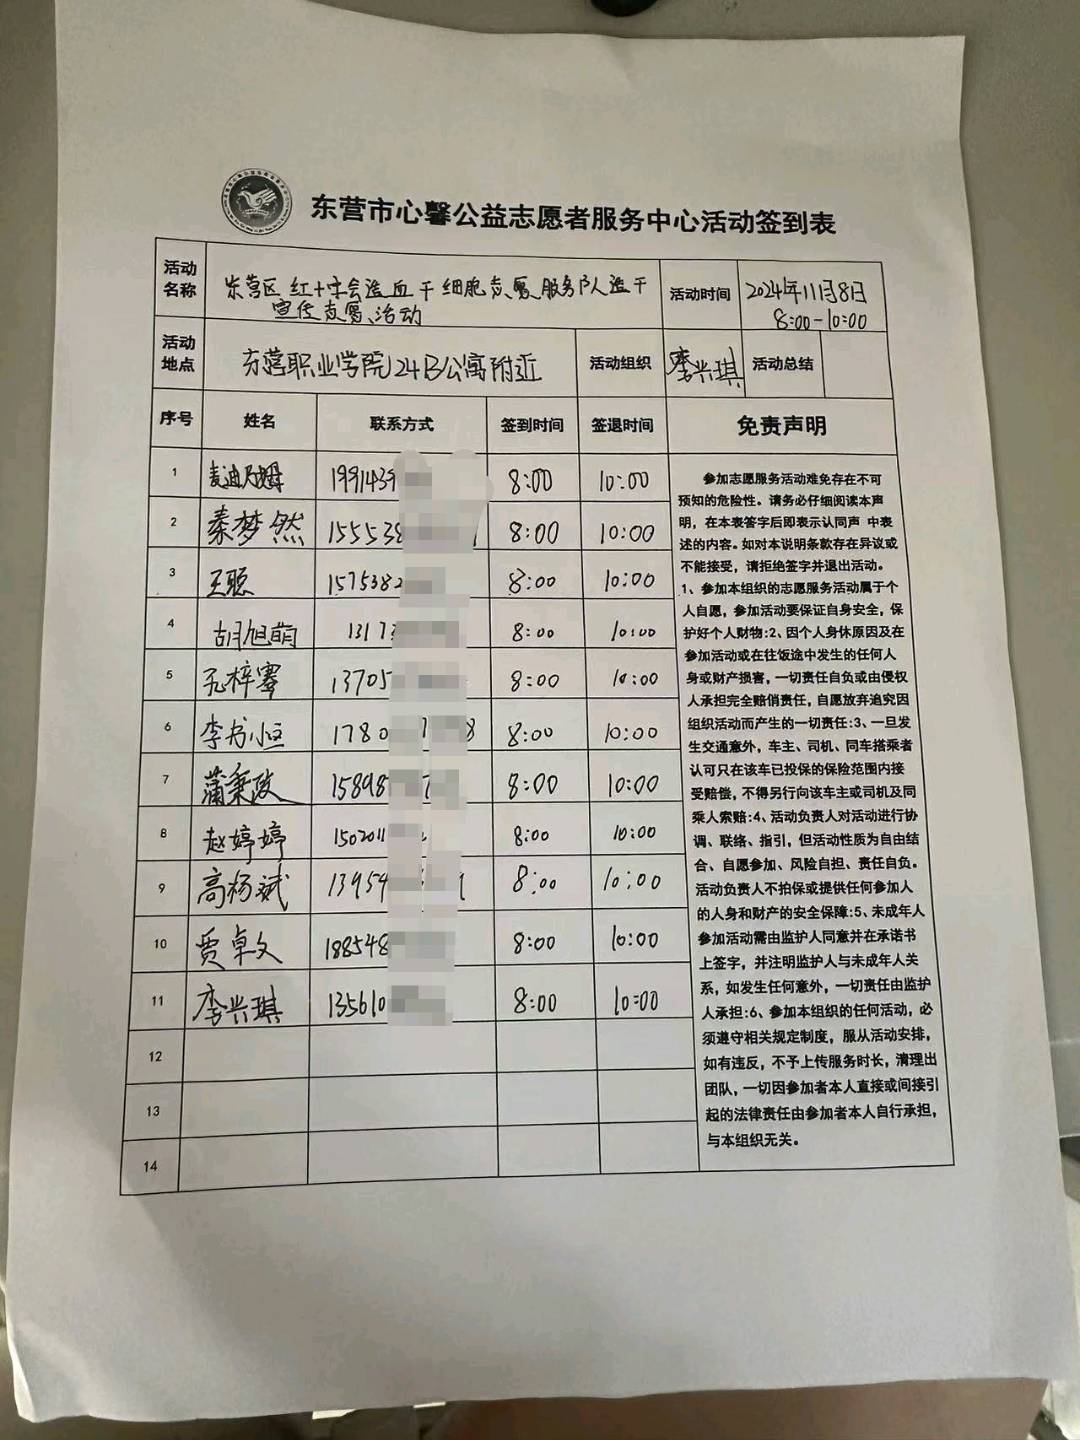 东营市心馨公益志愿者服务中心活动签到表
活动名称 东营区红十字会造血干细胞志愿服务队造干宣传志愿活动 活动时间 2024年11月8日 8:00-10:00
活动地点 东营职业学院24B公寓附近 活动组织 李兴琪 活动总结
序号 姓名 联系方式 签到时间 签退时间 免责声明
1 麦迪乃姆 1991439 8:00 10:00
2 秦梦然 155538 8:00 10:00
3 王聪 1575382 8:00 10:00
4 胡旭萌 1317 8:00 10:00
5 孔梓骞 13705 8:00 10:00
6 李书恒 1780 8 8:00 10:00
7 蒲秉政 15898 8:00 10:00
8 赵婷婷 1502011 8:00 10:00
9 高杨斌 13954 8:00 10:00
10 贾卓文 188548 8:00 10:00
11 李兴琪 135610 8:00 10:00
12
13
14
参加志愿服务活动难免存在不可
预知的危险性。请务必仔细阅读本声
明，在本表签字后即表示认同声 中表
述的内容。如对本说明条款存在异议或
不能接受，请拒绝签字并退出活动。
1、参加本组织的志愿服务活动属于个
人自愿，参加活动要保证自身安全，保
护好个人财物:2、因个人身休原因及在
参加活动或在往饭途中发生的任何人
身或财产损害，一切责任自负或由侵权
人承担完全赔俏责任，自愿放弃追究因
组织活动而产生的一切责任:3、一旦发
生交通意外，车主、司机、同车搭乘者
认可只在该车已投保的保险范围内接
受赔偿，不得另行向该车主或司机及同
乘人索赔:4、活动负责人对活动进行协
调、联络、指引，但活动性质为自由结
合、自愿参加、风险自担、责任自负。
活动负责人不拍保或提供任何参加人
的人身和财产的安全保障:5、未成年人
参加活动需由监护人同意并在承诺书
上签字，并注明监护人与未成年人关
系，如发生任何意外，一切责任由监护
人承担:6、参加本组织的任何活动，必
须遵守相关规定制度，服从活动安排，
如有违反，不予上传服务时长，清理出
团队，一切因参加者本人直接或间接引
起的法律责任由参加者本人自行承担，
与本组织无关。